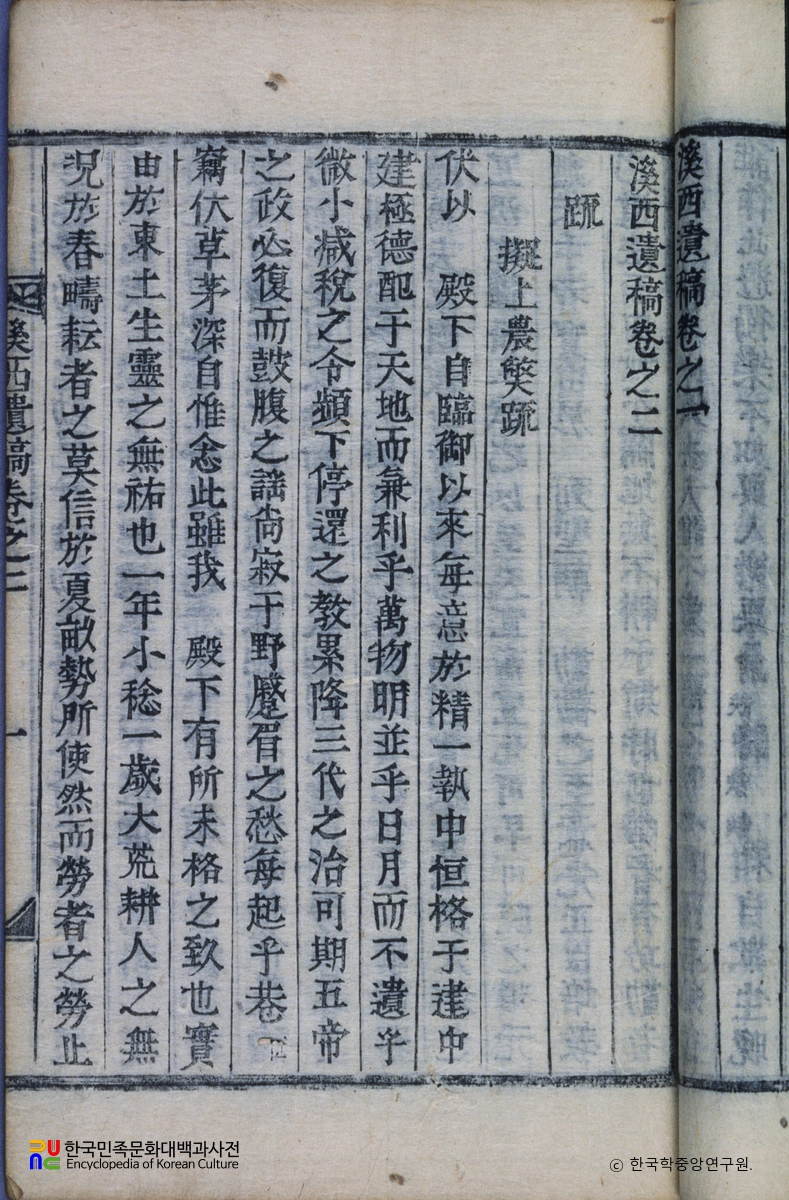 溪西遺稿卷之一
溪西遺稿卷之二
疏
擬上農獘疏
伏以 殿下自臨御以來每意於精一執中恒格于建中
建極德配于天地而兼利乎萬物明並乎日月而不遺乎
微小减稅之令頻下停還之敎累降三代之治可期五帝
之政必復而鼓腹之謠尙寂于野蹙眉之愁每起乎巷
竊伏草茅深自惟念此雖我 殿下有所未格之致也實
由於東土生靈之無祐也一年小稔一歲大荒耕人之無
况於春疇耘者之莫信於夏畝勢所使然而勞者之勞止
溪西遺稿卷之二
一
한국민족문화대백과사전
Encyclopedia of Korean Culture
© 한국학중앙연구원.